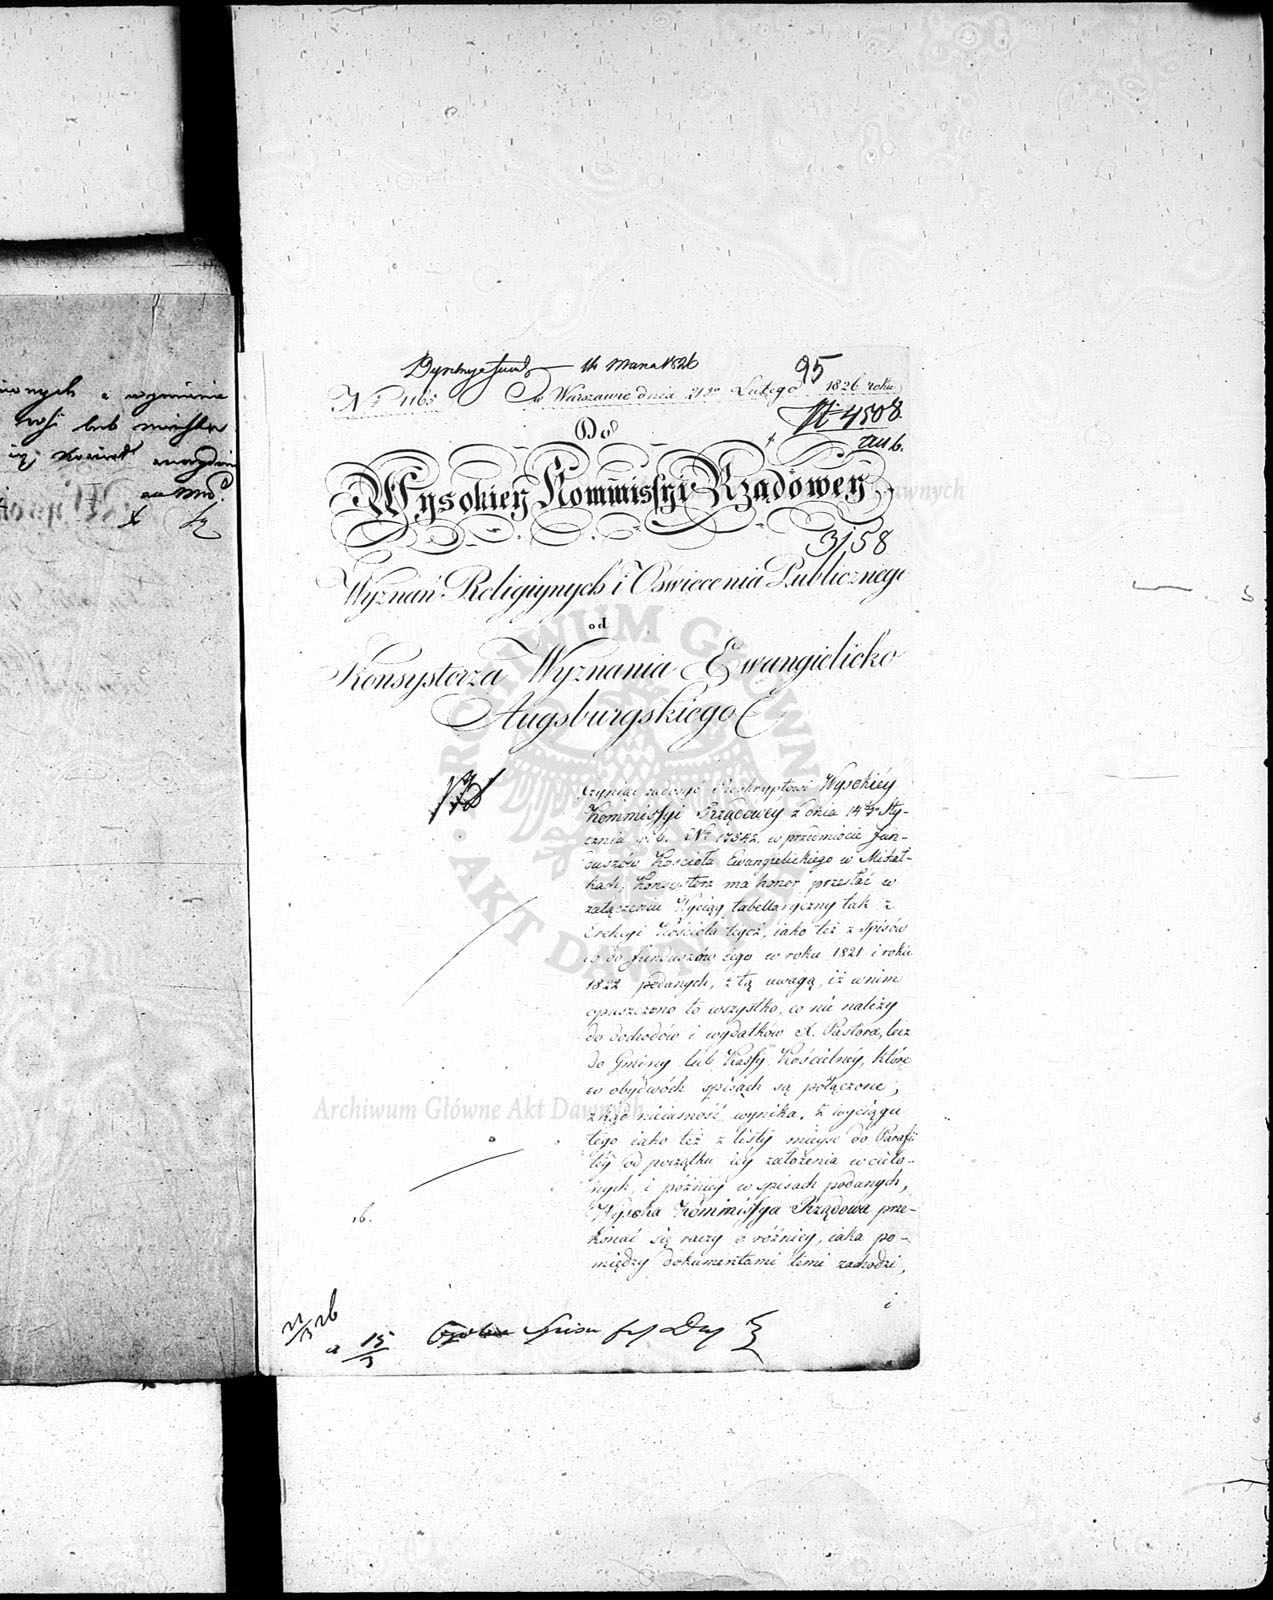 14 Marca 1826
95
No 1165 w Warszawie dnia 21go Lutego 1826 roku
No 4508
Do
Wysokiey Kommissyi Rządowey
3158
Wyznań Religiynych i Oświecenia Publicznego
od
Konsystorza Wyznania Ewangielicko
Augsburgskiego
Czyniąc zadosyć Reskryptowi Wysokiéy
Kommissyi Rządowéy z dnia 14go Sty-
cznia r. b. No 17842 w przedmiocie Fun-
duszów Kościoła Ewangielickiego w
kach, Konsystorz ma honor przesłać w
załączeniu Wyciąg tabellaryczny tak z
Erekcyi Kościoła tegoż, iako też z spisów
co do funduszów iego w roku 1821 i roku
1822 podanych, z tą uwagą, iż w nim
opuszczono to wszystko, co nie należy
do dochodów i wydatków X. Pastora, lecz
do Gminy lub Kassy Kościelnéy, które
w obydwóch spisach są połączone,
zkąd nieiasność wynika. Z wyciągu
tego iako też z listy mieysc do Parafii
téy od początku iey założenia wcielo-
nych, i późniéy w spisach podanych,
Wysoka Kommissya Rządowa prze-
konać się raczy o różnicy, iaka po-
między dokumentami temi zachodzi,
i
15
3
nionych z
lub
Archiwum Główne Akt Dawnych
ARCHIWUM GŁÓWNE AKT DAWNYCH